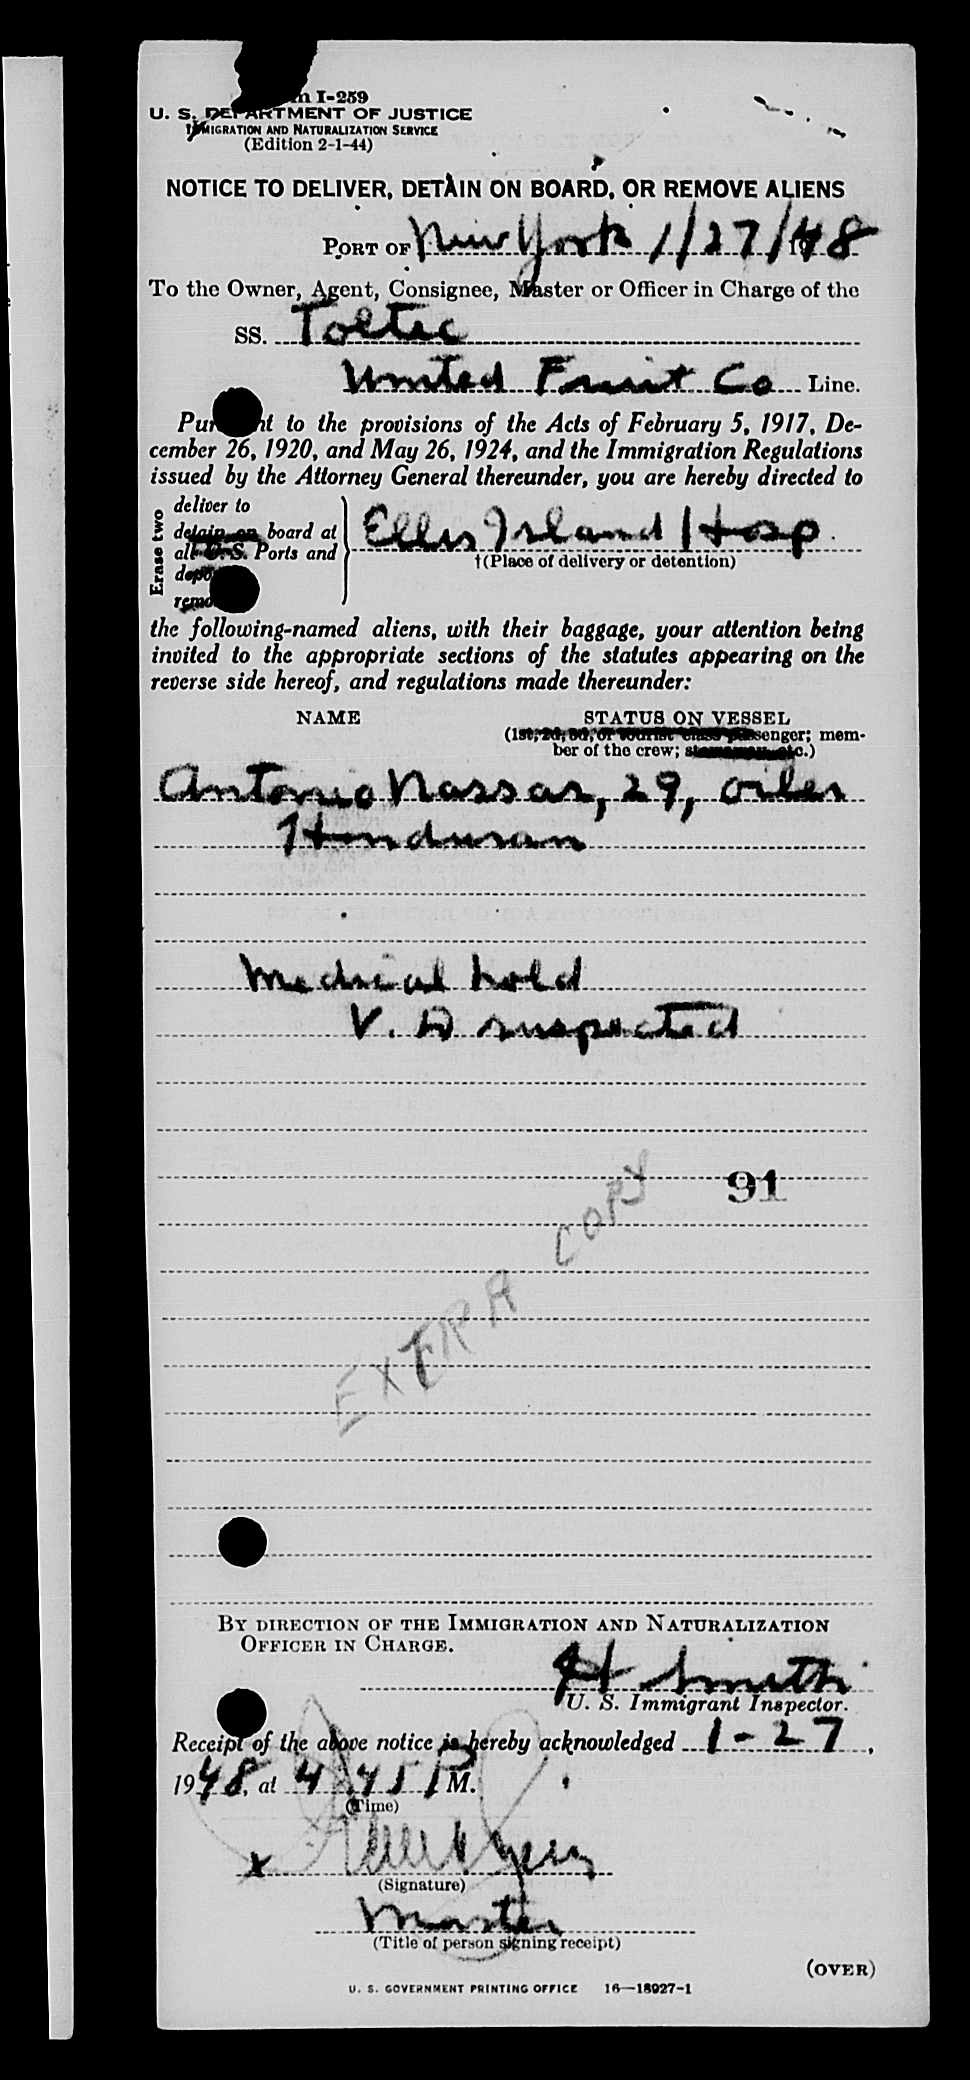 m I-259
U. S. DEPARTMENT OF JUSTICE
IMMIGRATION AND NATURALIZATION SERVICE
(Edition 2-1-44)
NOTICE TO DELIVER, DETAIN ON BOARD, OR REMOVE ALIENS
PORT OF New York 1/27/1948
To the Owner, Agent, Consignee, Master or Officer in Charge of the
SS. Toltec
United Fruit Co Line.
Pursuant to the provisions of the Acts of February 5, 1917, De-
cember 26, 1920, and May 26, 1924, and the Immigration Regulations
issued by the Attorney General thereunder, you are hereby directed to
Erase two
deliver to
detain on board at
all U.S. Ports and
Ellis Island Hosp.
†(Place of delivery or detention)
the following-named aliens, with their baggage, your attention being
invited to the appropriate sections of the statutes appearing on the
reverse side hereof, and regulations made thereunder:
NAME STATUS ON VESSEL
(1st, 2d, 3d, or tourist class passenger; mem-
ber of the crew; stowaway, etc.)
Antonio Nassar, 29, oiler
Honduran
Medical hold
V. D suspected
91
EXTRA COPY
BY DIRECTION OF THE IMMIGRATION AND NATURALIZATION
OFFICER IN CHARGE.
H Smith
U. S. Immigrant Inspector.
Receipt of the above notice is hereby acknowledged 1-27,
1948, at 4 45 P M.
(Time)
x
(Signature)
Master
(Title of person signing receipt)
(OVER)
U. S. GOVERNMENT PRINTING OFFICE 16—18927-1